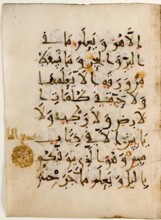 الا هو ويعلم ما في
البر والبحر وما تسقط
من ورقة الا يعلمها
ولا حبة في ظلمات ا
لارض ولا رطب ولا
يابس الا في كتاب مبين
وهو الذي يتوفيكم
باليل ويعلم ما جرحتم